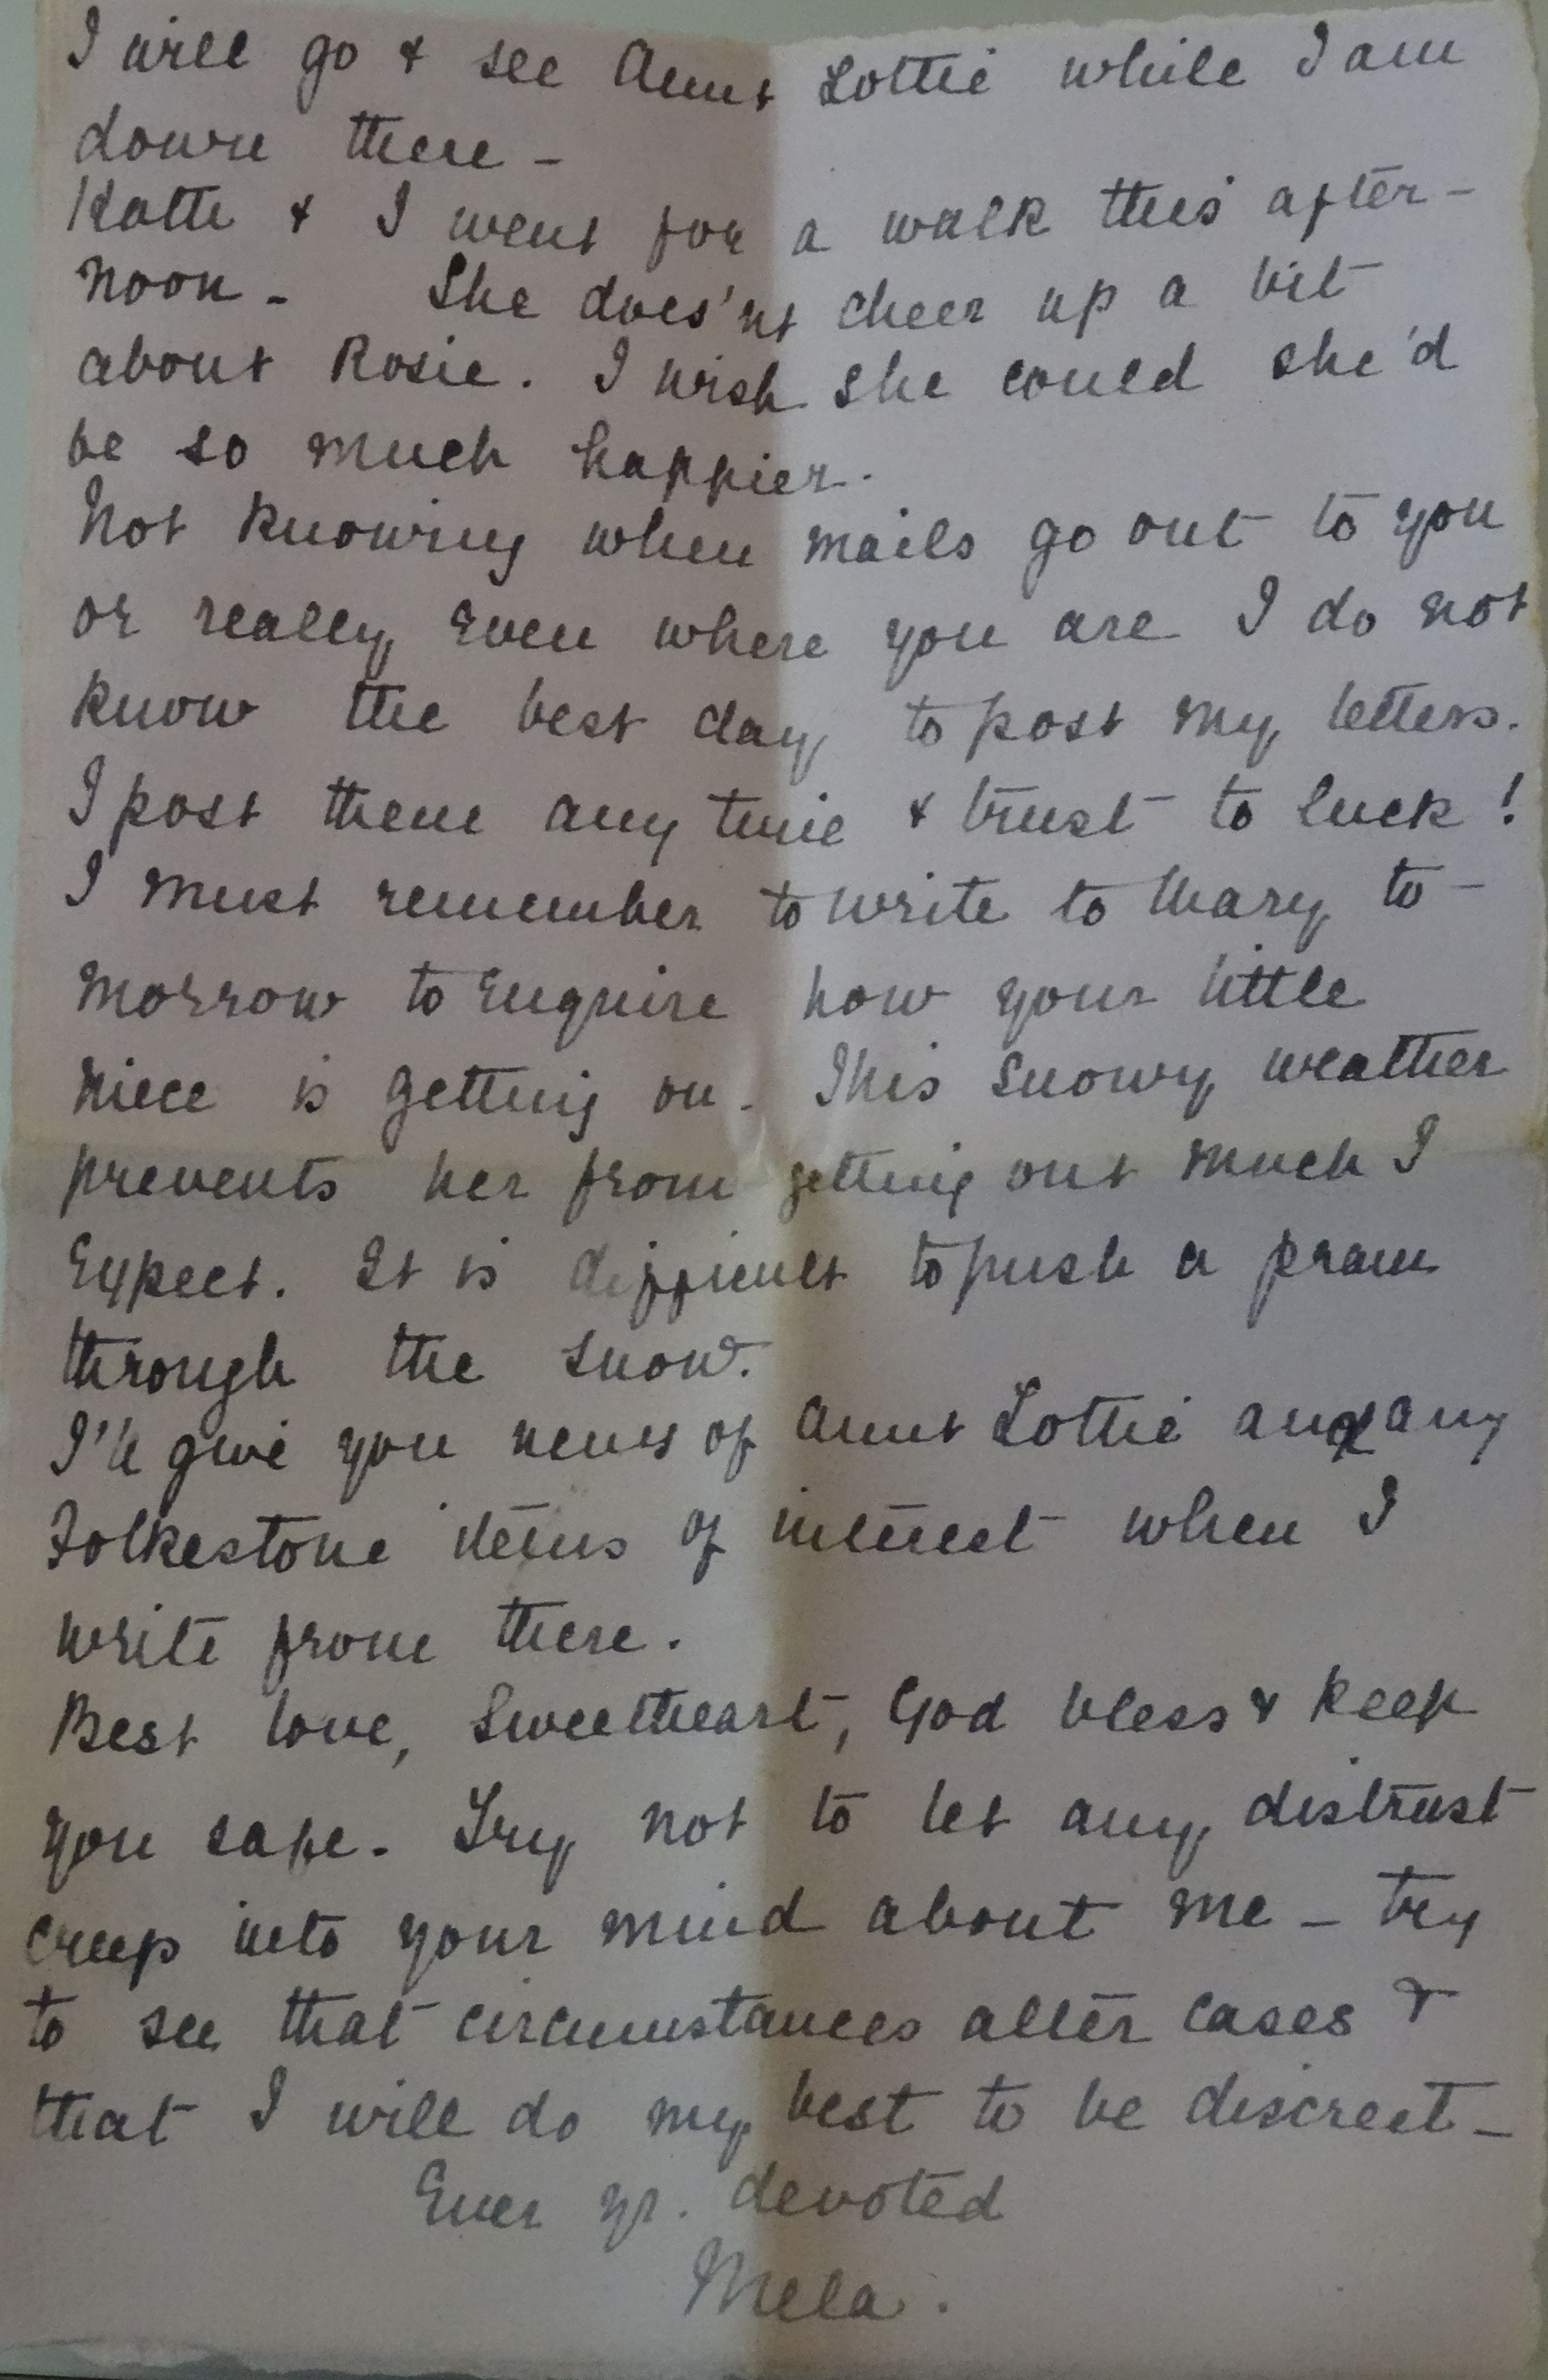 I will go & see Aunt Lottie while I am
down there -
Katie & I went for a walk this after-
noon - She does'nt cheer up a bit
about Rosie. I wish she could she'd
be so much happier.
Not knowing when mails go out to you
or really even where you are I do not
know the best day to post my letters.
I post them any time & trust to luck!
I must remember to write to Mary to-
morrow to enquire how your little
niece is getting on. This snowy weather
prevents her from getting out much I
expect. It is difficult to push a pram
through the snow.
I'll give you news of Aunt Lottie and any
Folkestone items of interest when I
write from there.
Best love, Sweetheart, God bless & keep
you safe. Try not to let any distrust
creep into your mind about me - try
to see that circumstances alter cases &
that I will do my best to be discreet -
Ever yr. devoted
Mela.